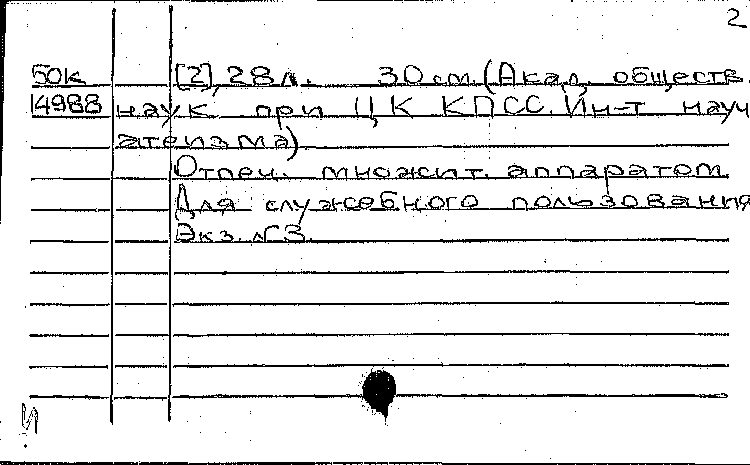 2
50к [2], 28 л. 30 см. (Акад. обществ.
14988 наук при ЦК КПСС. Ин-т науч
атеизма).
Отпеч. множит. аппаратом.
Для служебного пользования
Экз. №3.
И